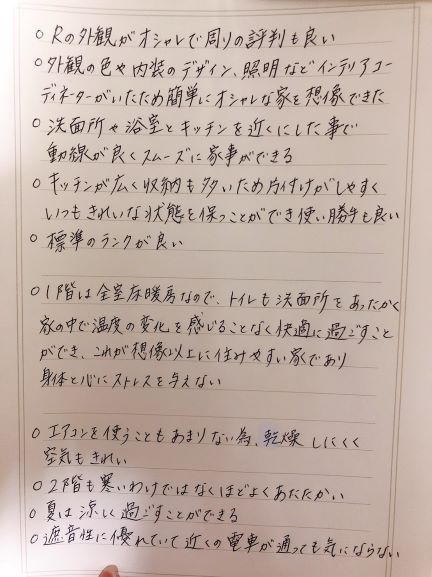 ○ Rの外観がオシャレで周りの評判も良い
○外観の色や内装のデザイン、照明などインテリアコー
ディネーターがいたため簡単にオシャレな家を想像できた
○ 洗面所や浴室とキッチンを近くにした事で
動線が良くスムーズに家事ができる
○ キッチンが広く収納も多いため片付けがしやすく
いつもきれいな状態を保つことができ使い勝手も良い
○ 標準のランクが良い
○1階は全室床暖房なので、トイレも洗面所もあったかく
家の中で温度の変化を感じることなく快適に過ごすこと
ができ、これが想像以上に住みやすい家であり
身体と心にストレスを与えない
○ エアコンを使うこともあまりない為、乾燥しにくく
空気もきれい
○ 2階も寒いわけではなくほどよくあたたかい
○ 夏は涼しく過ごすことができる
○ 遮音性に優れていて近くの電車が通っても気にならない